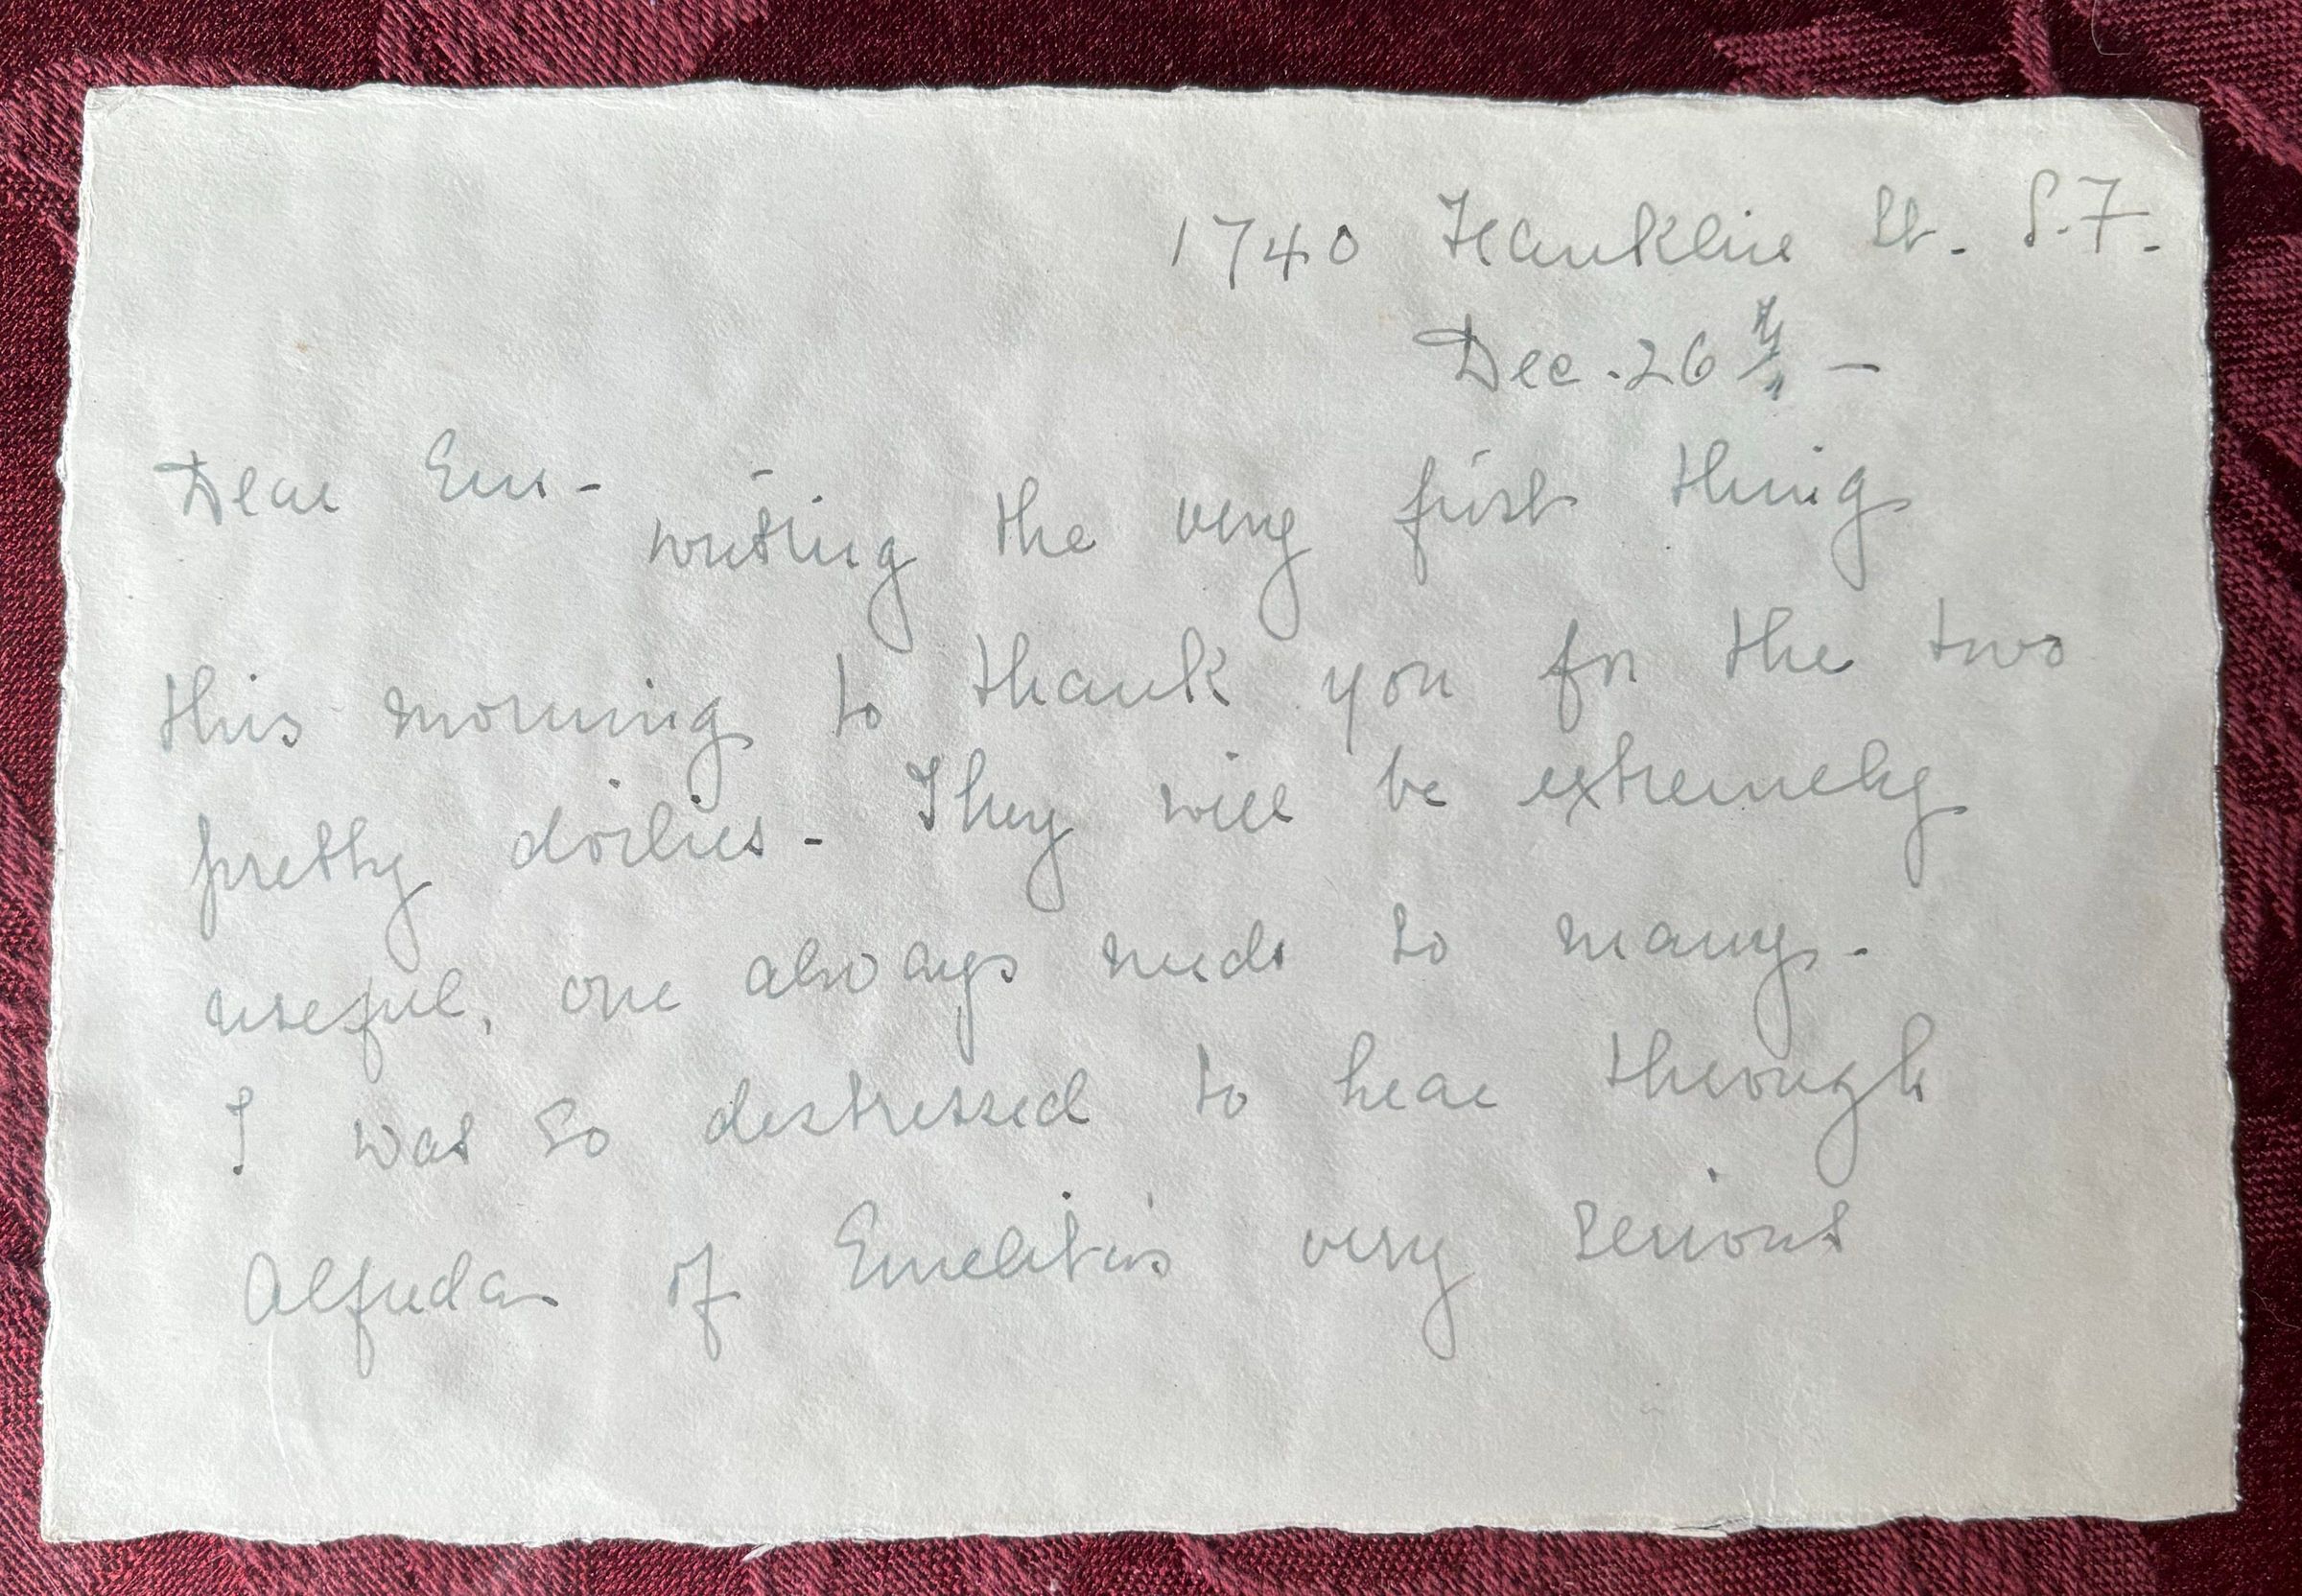 1740 Franklin St. S.F.
Dec. 26th –
Dear Em-
writing the very first thing
this morning to thank you for the two
pretty doilies - They will be extremely
useful, one always needs so many -
I was so distressed to hear through
Alfreda of Emelita's very serious